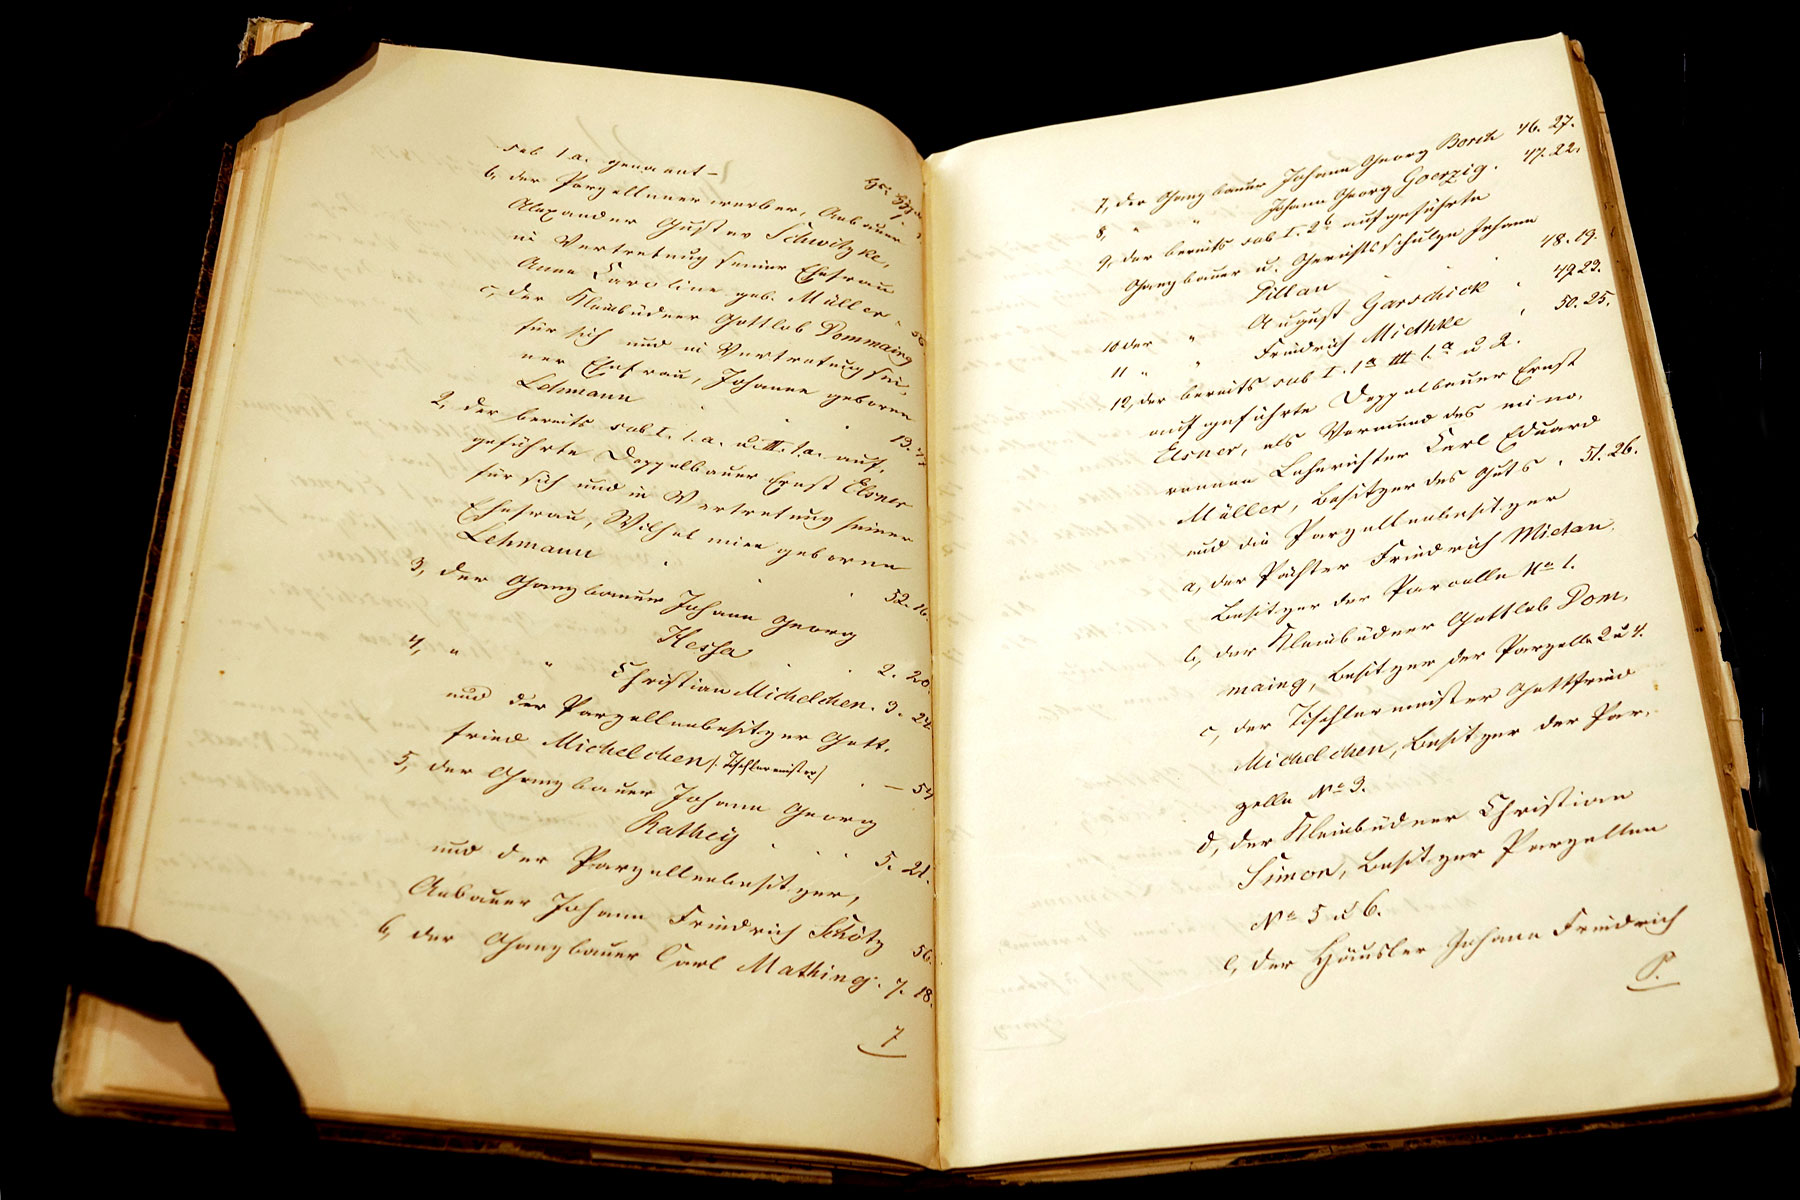 sub 1 a. genannt –
b, der Parzellenerwerber, Anbauer
Alexander Gustav Schwitzke,
in Vertretung seiner Ehefrau
Anna Caroline geb. Müller
c, der Kleinbüdner Gottlob Dommaing
für sich und in Vertretung sei,
ner Ehefrau, Johanne geboren
Lehmann 13.
2, der bereits sub I. 1. a. u. III. 1.a. auf,
geführte Doppelbauer Ernst Elsner
für sich und in Vertretung seiner
Ehefrau, Wilhelmine geborne
Lehmann 52. 16.
3, der Ganzbauer Johann Georg
Hessa 2. 20.
4, " " Christian Michelchen. 3. 24
und der Parzellenbesitzer Gott,
fried Michelchen /: Tischlermeister/ – 54
5, der Ganzbauer Johann Georg
Rathey 5. 21.
und der Parzellenbesitzer,
Anbauer Johann Friedrich Schötz 56.
6, der Ganzbauer Carl Mathing. 7. 18.
7
7, der Ganzbauer Johann Georg Borch 46. 27.
8, " " Johann Georg Goerzig. 47. 22.
9, der bereits sub I. 2b aufgeführte
Ganzbauer u. Gerichtsschulze Johann
Pillan 48. 19.
10 der " August Garschick 49 23.
11 " " Friedrich Miethke 50. 25.
12, der bereits sub I. 1a III 1.a u 2.
aufgeführte Doppelbauer Ernst
Elsner, als Vormund des mino,
rennen Lehnrichter Carl Eduard
Müller, Besitzer des Guts 51. 26.
und die Parzellenbesitzer
a, der Pächter Friedrich Mietan,
Besitzer der Parcelle No 1.
b, der Kleinbüdner Gottlob Dom,
maing, Besitzer der Parzelle 2 u 4.
c, der Tischlermeister Gottfried
Michelchen, Besitzer der Par,
zelle No 3.
d, der Kleinbüdner Christian
Simon, Besitzer Parzellen
No 5 u 6.
e, der Häusler Johann Friedrich
P.